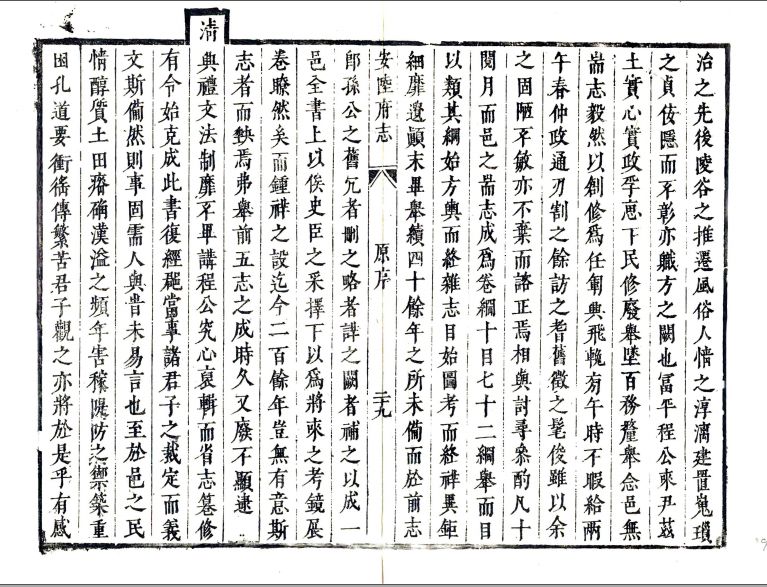 治之先後陵谷之推遷風俗人情之淳漓建置嵬瑣
之貞佞隱而不彰亦職方之闕也富平程公來尹茲
土實心實政孚惠下民修廢舉墜百務釐舉念邑無
耑志毅然以創修為任朝典飛輓旁午時不暇給兩
午春仲政通刃割之餘訪之耆舊徵之髦俊雖以余
之固陋不敏亦不棄而諮正焉相與討尋參酌凡十
閱月而邑之耑志成為卷綱十目七十二綱舉而目
以類其綱始方輿而終雜志目始圖考而終祥異鉅
細靡遺顛末畢舉續四十餘年之所未備而於前志
安陸府志
原序
三十九
郎孫公之舊冗者刪之略者詳之闕者補之以成一
邑全書上以俟史臣之采擇下以為將來之考鏡展
卷瞭然矣而鍾祥之設迄今二百餘年豈無有意斯
志者而埶焉弗舉前五志之成時久又廢不顯逮
清典禮文法制靡不畢講程公究心裒輯而省志纂修
有令始克成此書復經當事諸君子之裁定而義
文斯備然則事固需人與昔未易言也至於邑之民
情醇質土田瘠确漢溢之頻年害稼隄防之禦築重
困孔道要衝徭傳繁苦君子觀之亦將於是乎有感